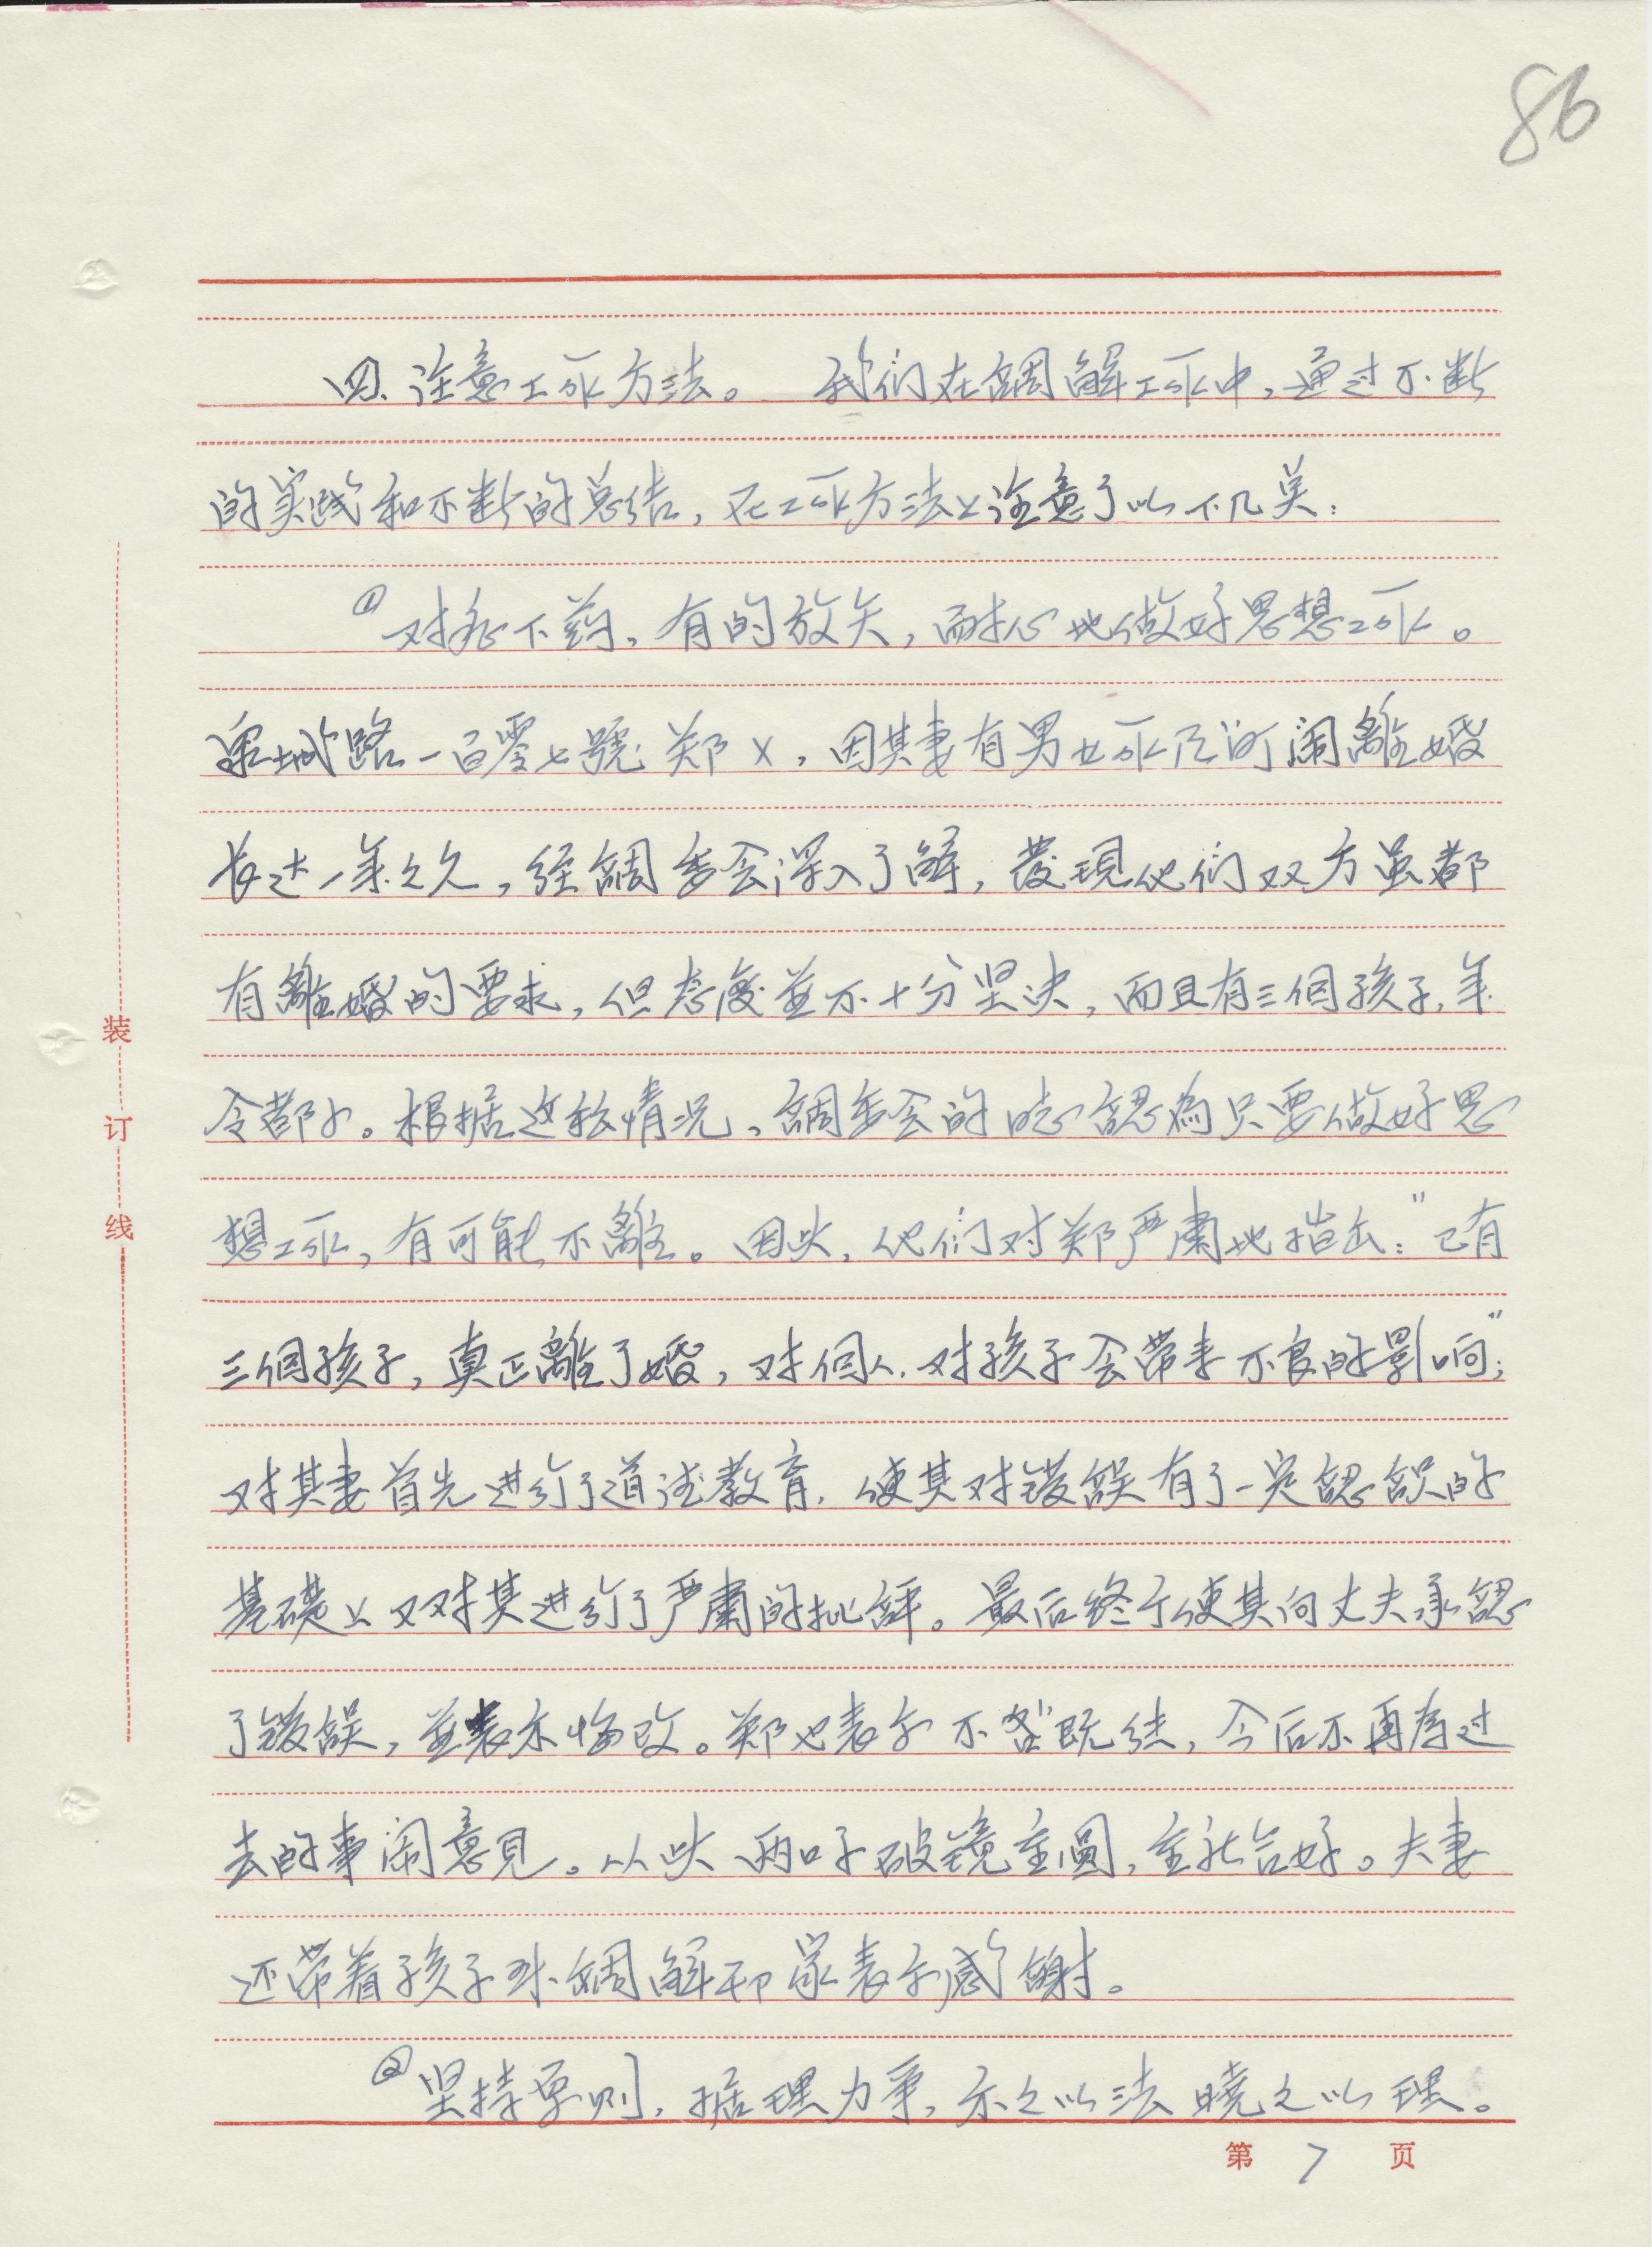 86
四、注意工作方法。 我们在調解工作中，通过不断
的实践和不断的总结，在工作方法上注意了以下几点：
①对症下药，有的放矢，耐心地做好思想工作。
泉城路一百零七號郑×，因其妻有男女作风问闹離婚
长达一年之久，经調委会深入了解，發現他们双方虽都
有離婚的要求，但态度並不十分坚决，而且有三個孩子，年
令都小。根据这种情况，調委会的同志認為只要做好思
想工作，有可能不離。因此，他们对郑严肃地指出：“已有
三個孩子，真正離了婚，对個人、对孩子会带来不良的影响”；
对其妻首先进行了道德教育，使其对錯誤有了一定認識的
基礎上又对其进行了严肃的批評。最后终于使其向丈夫承認
了錯誤，並表示悔改。郑也表示不咎既往，今后不再为过
去的事闹意見。从此两口子破镜重圆，重新合好。夫妻
还带着孩子对調解干部家表示感謝。
②坚持原则，据理力争，示之以法曉之以理。
装
订
线
第 7 页